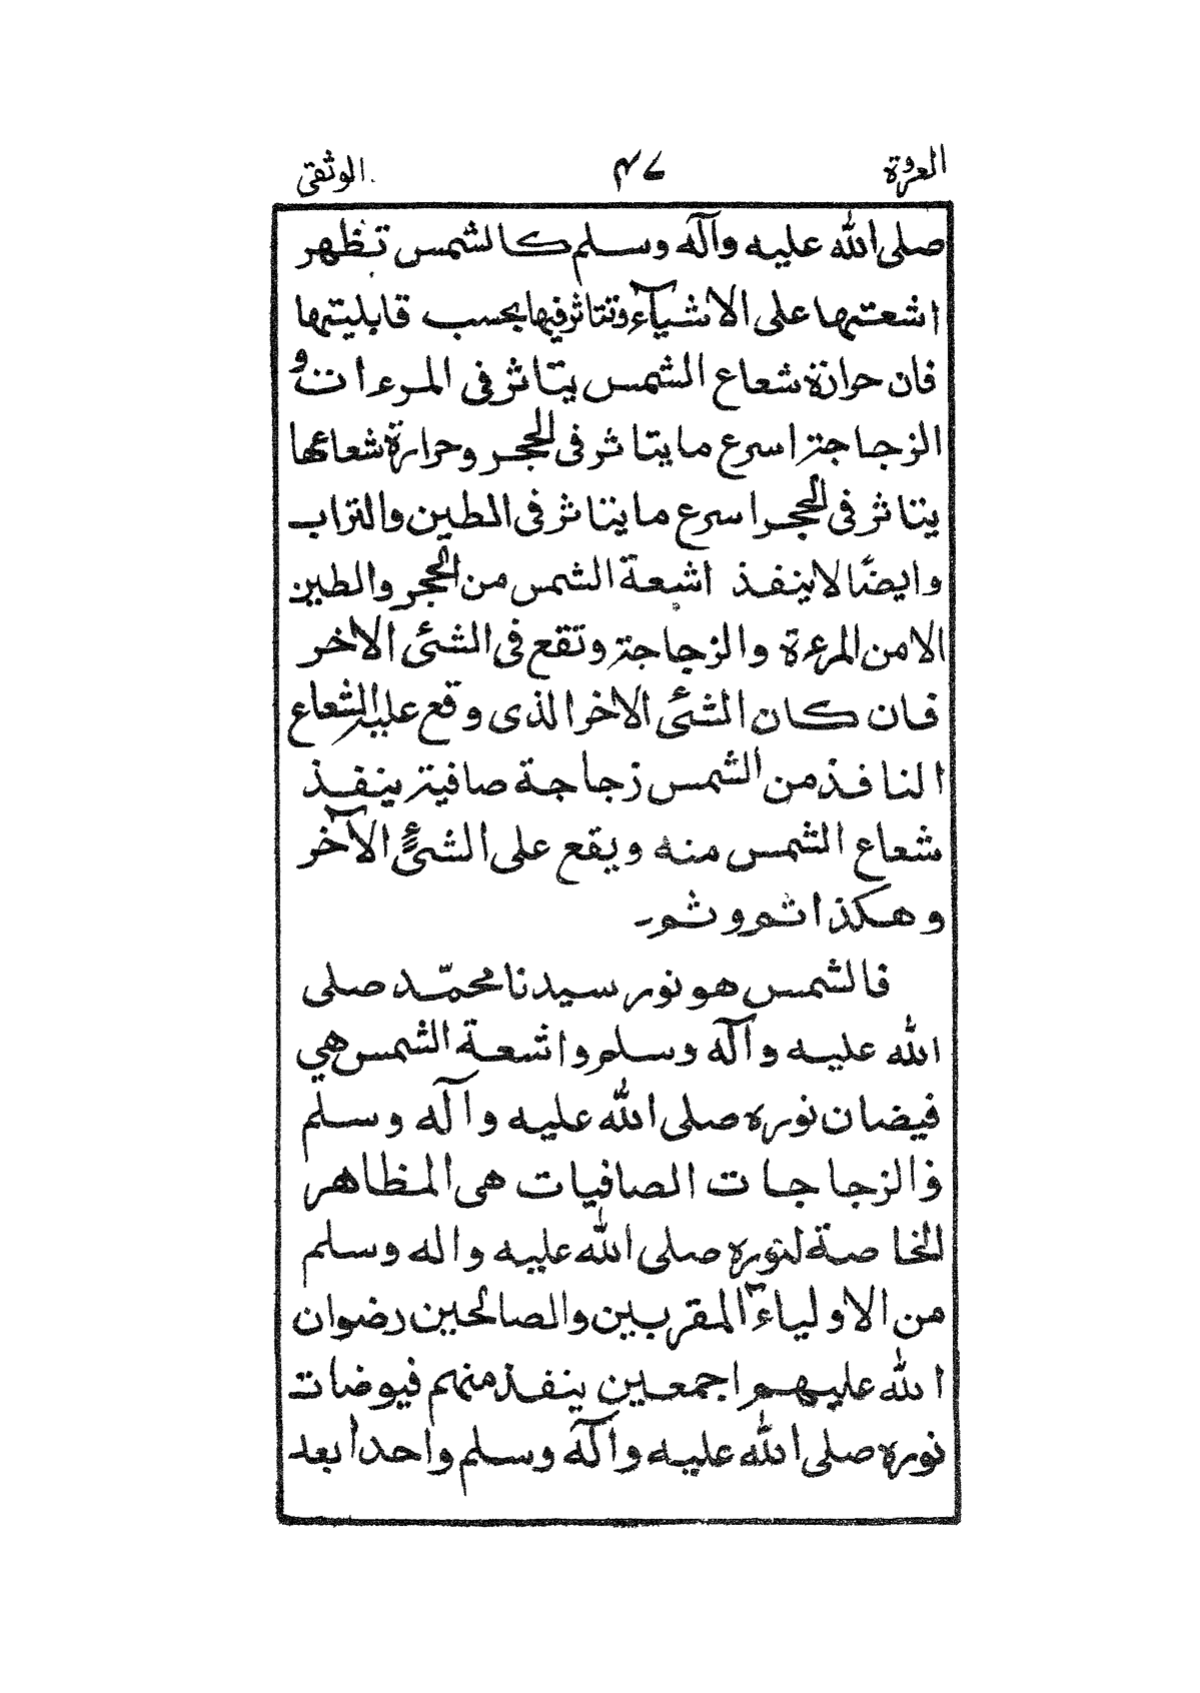 العروة ۴۷ الوثقى
صلى الله عليه وآله وسلم كالشمس تظهر
اشعتها على الاشياء وتتاثر فيها بحسب قابليتها
فان حرارة شعاع الشمس يتاثر فى المرءات و
الزجاجة اسرع ما يتاثر فى الحجر وحرارة شعاعها
يتاثر فى الحجر اسرع ما يتاثر فى الطين والتراب
وايضًا لا ينفذ اشعة الشمس من الحجر والطين
الا من المرءة والزجاجة وتقع فى الشئ الاخر
فان كان الشئ الاخر الذى وقع عليه الشعاع
النافذ من الشمس زجاجة صافية ينفذ
شعاع الشمس منه ويقع على الشئ الآخر
وهكذا ثم وثم۔
فالشمس هو نور سيدنا محمّد صلى
الله عليه وآله وسلم واشعة الشمس هي
فيضان نوره صلى الله عليه وآله وسلم
فالزجاجات الصافيات هى المظاهر
الخاصة لنوره صلى الله عليه واله وسلم
من الاولياء المقربين والصالحين رضوان
الله عليهم اجمعين ينفذ منهم فيوضات
نوره صلى الله عليه وآله وسلم واحدا بعد